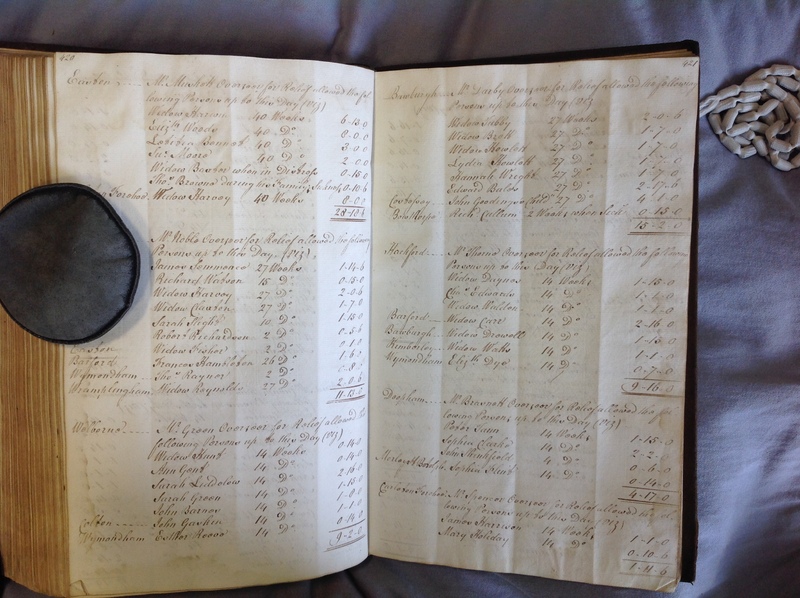 420
Easton Mr. Muskett Overseer for Relief allowed the fol
lowing Persons up to this Day (Viz)
Widow Brown 40 Weeks 6-13-0
Eliz.th Woods 40 Do 8-0-0
40 Do 3-0-0
Moore 40 Do 2-0-0
Widow Barber when in Distress 0-15-0
Thos. Browne during his Family Sickness 0-10-6
Widow Harvey 40 Weeks 8-0-0
Mr. Noble Overseer for Relief allowed the following
Persons up to this Day (Viz)
James 27 Weeks 1-14-6
Richard Watson 15 Do 0-15-0
Widow Harvoy 27 Do 2-0-6
Widow Clawton 27 Do 1-7-0
Sarah 1-15-0
Robert Richardson 2 Do 0-5-6
Widow Fisher 2 Do 0-1-0
Francis 26 Do 1-6-0
Wymondham Thos. Raynor 2 Do
Wramplingham Widow Reynolds 27 Do 2-0-6
11-13-0
Mr. Green Overseer for Relief allowed the
following Persons up to this Day (Viz)
Widow Hunt 14 Weeks 0-14-0
Ann Gent 14 Do 0-14-0
Sarah Liddelow 14 Do 2-16-0
Sarah Green 14 Do 1-15-0
John Barnes 14 Do 1-1-0
Colton John 14 Do
Wymondham Esther Reeve 14 Do 0-14-0
9-2-0
421
Bawburgh Mr. Darby Overseer for Relief allowed the following
Persons up to this Day (Viz)
Widow 27 Weeks 2-0-6
Widow Brett 27 Do 1-7-0
Widow Howlett 27 Do 1-7-0
Lydia Howlett 27 Do 1-7-0
Hannah Wright 27 Do 1-7-0
Edward Bales 27 Do 2-17-6
Costessey John Goodings 27 Do 4-1-0
Cullum 2 Weeks when Sick 0-15-0
15-2-0
Hackford Mr. Thorne Overseer for Relief allowed the following
Persons up to this Day (Viz)
Widow Daynes 14 Weeks 1-15-0
Chs. Edwards 14 Do 1-1-0
Widow 14 Do 1-1-0
Barford Widow Carr 14 Do 2-16-0
Bawburgh Widow Drewell 14 Do 1-15-0
Kimberley Widow Watts 14 Do 1-1-0
Wymondham Eliz.th Dye 14 Do 0-7-0
9-16-0
Deopham Mr. Overseer for Relief allowed the fol
lowing Persons up to this Day (Viz)
Peter 14 Weeks 1-15-0
Sophia Clarke 14 Do 2-2-0
John 4 Do 0-6-0
Sophia Hunt 14 Do 0-14-0
4-17-0
Carleton Forehoe Mr. Spencer Overseer for Relief allowed the fol
lowing Persons up to this Day (Viz)
James Harrison 14 Weeks 1-1-0
Mary Holiday 14 Do 0-10-6
1-11-6